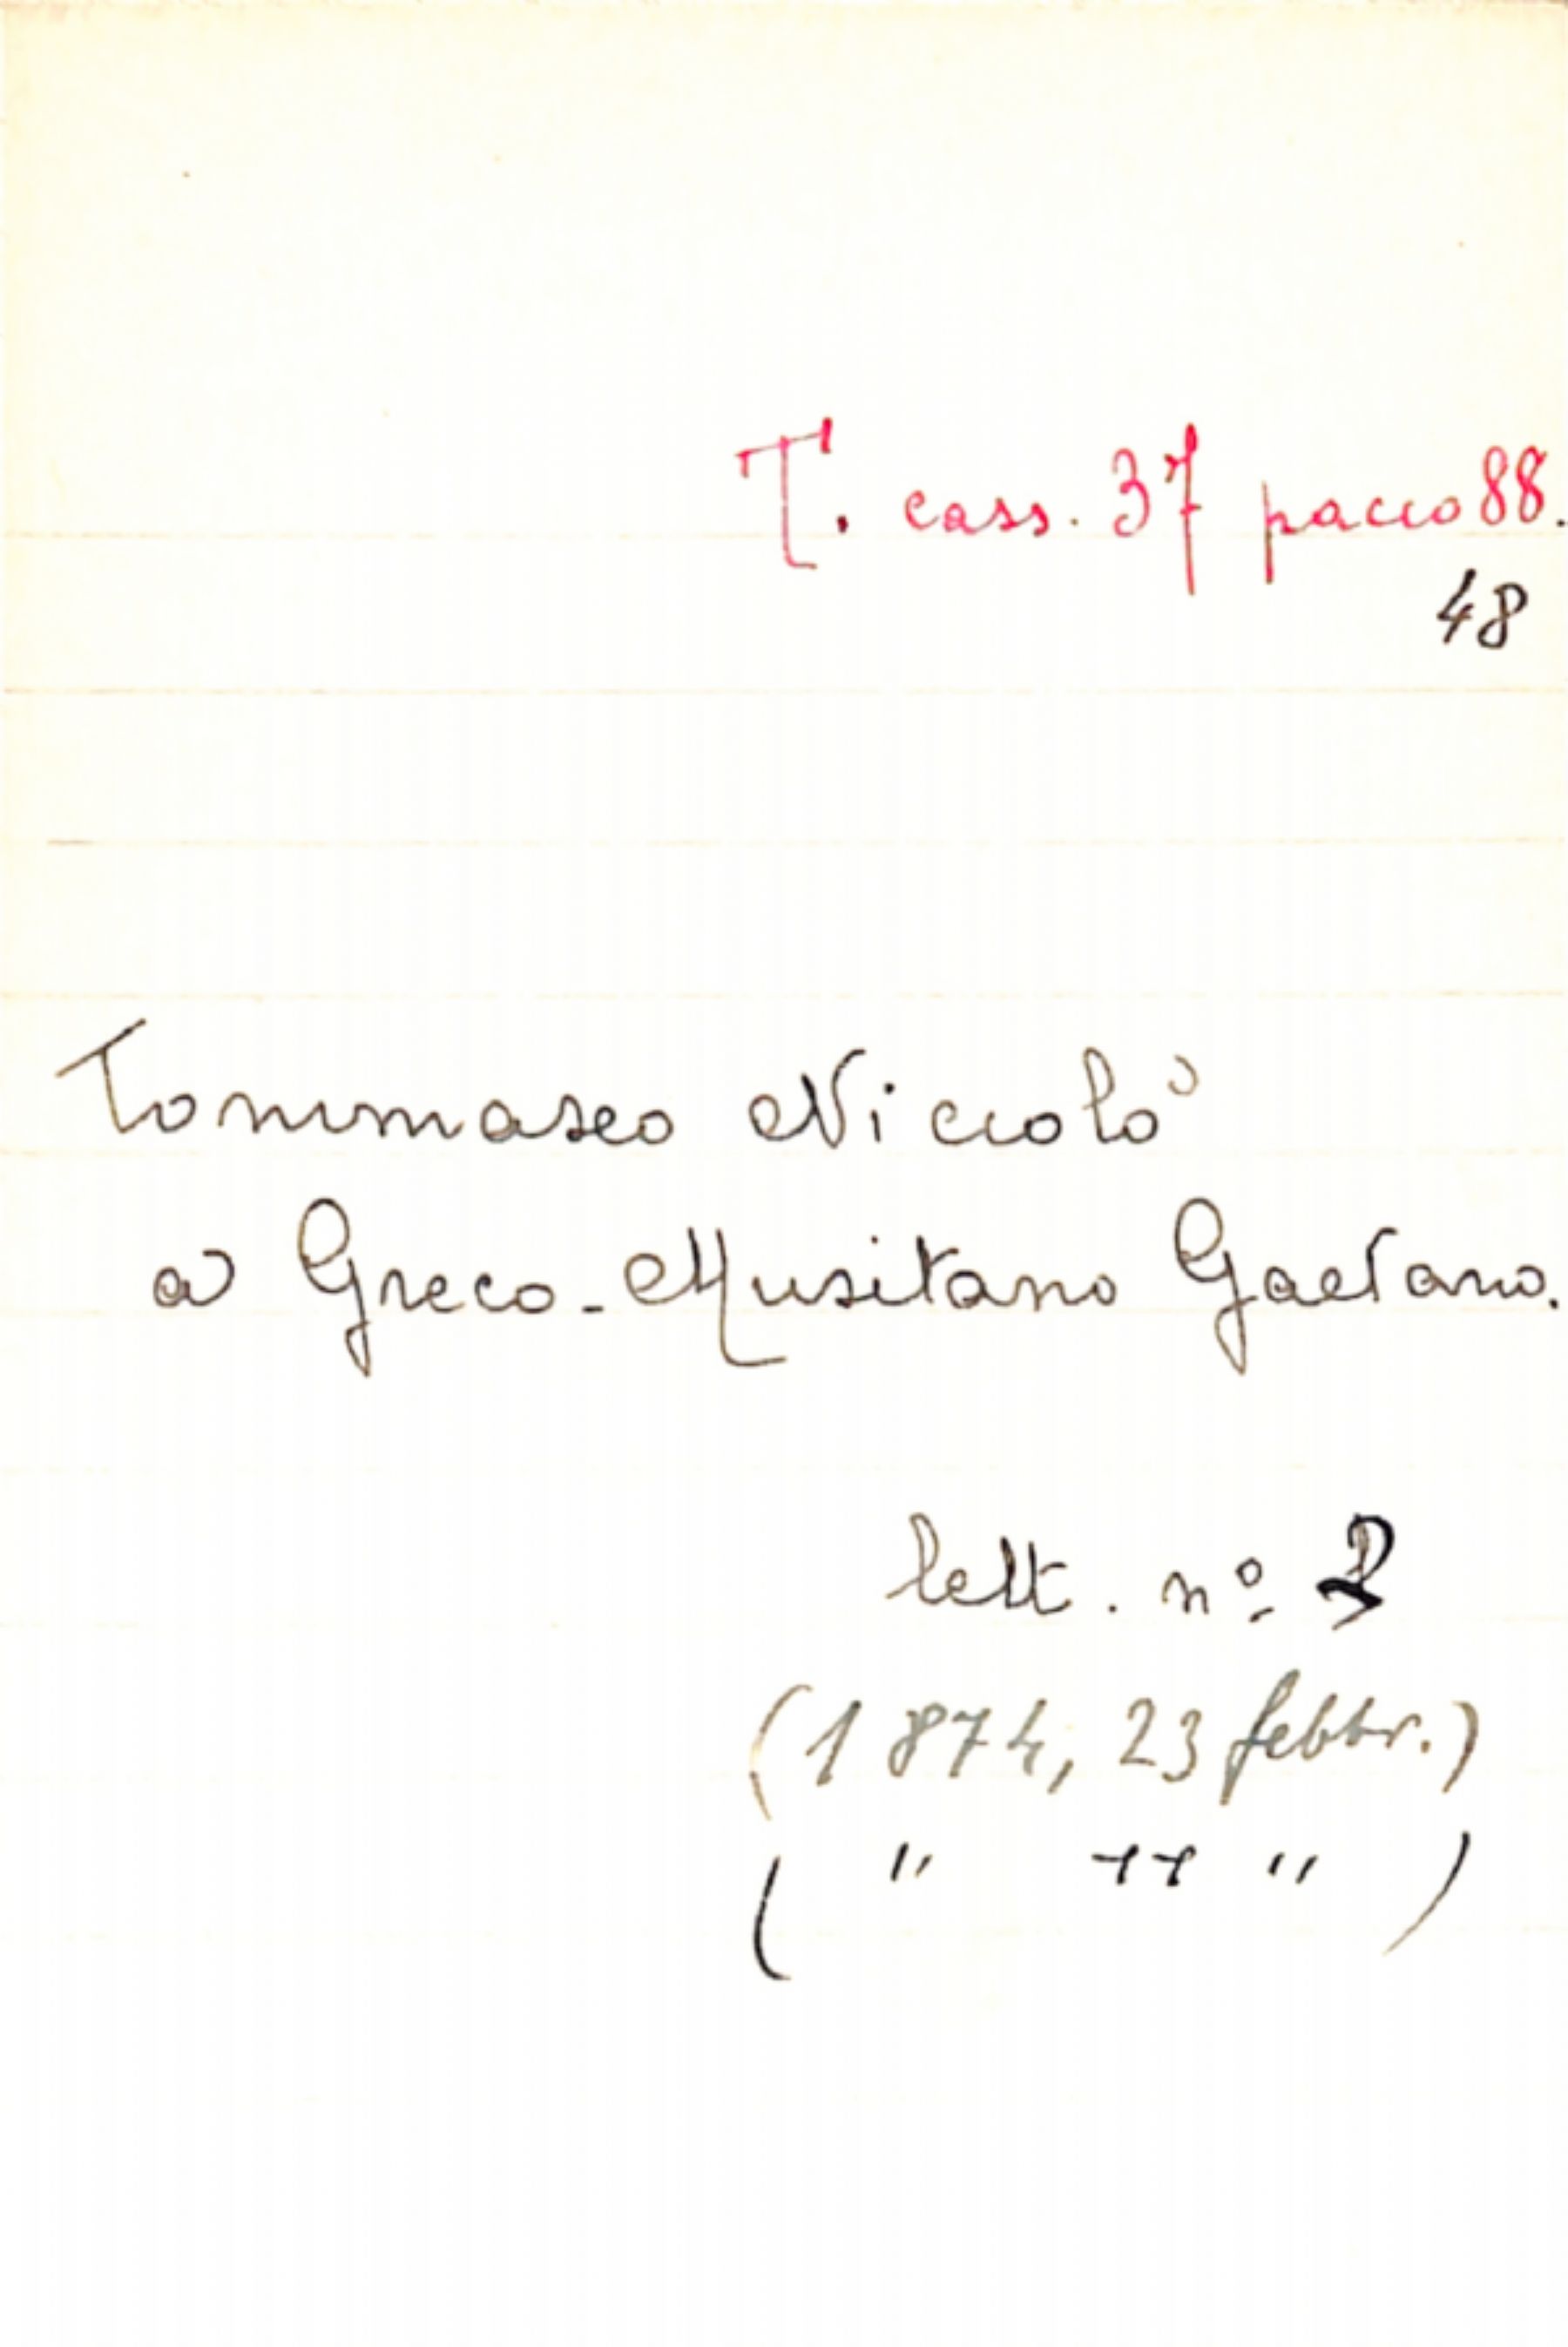 T. cass. 37 pacco 88.
48
Tommaseo Niccolò
a Greco-Musitano Gaetano.
lett. nº 2
(1874, 23 febbr.)
( " " " )